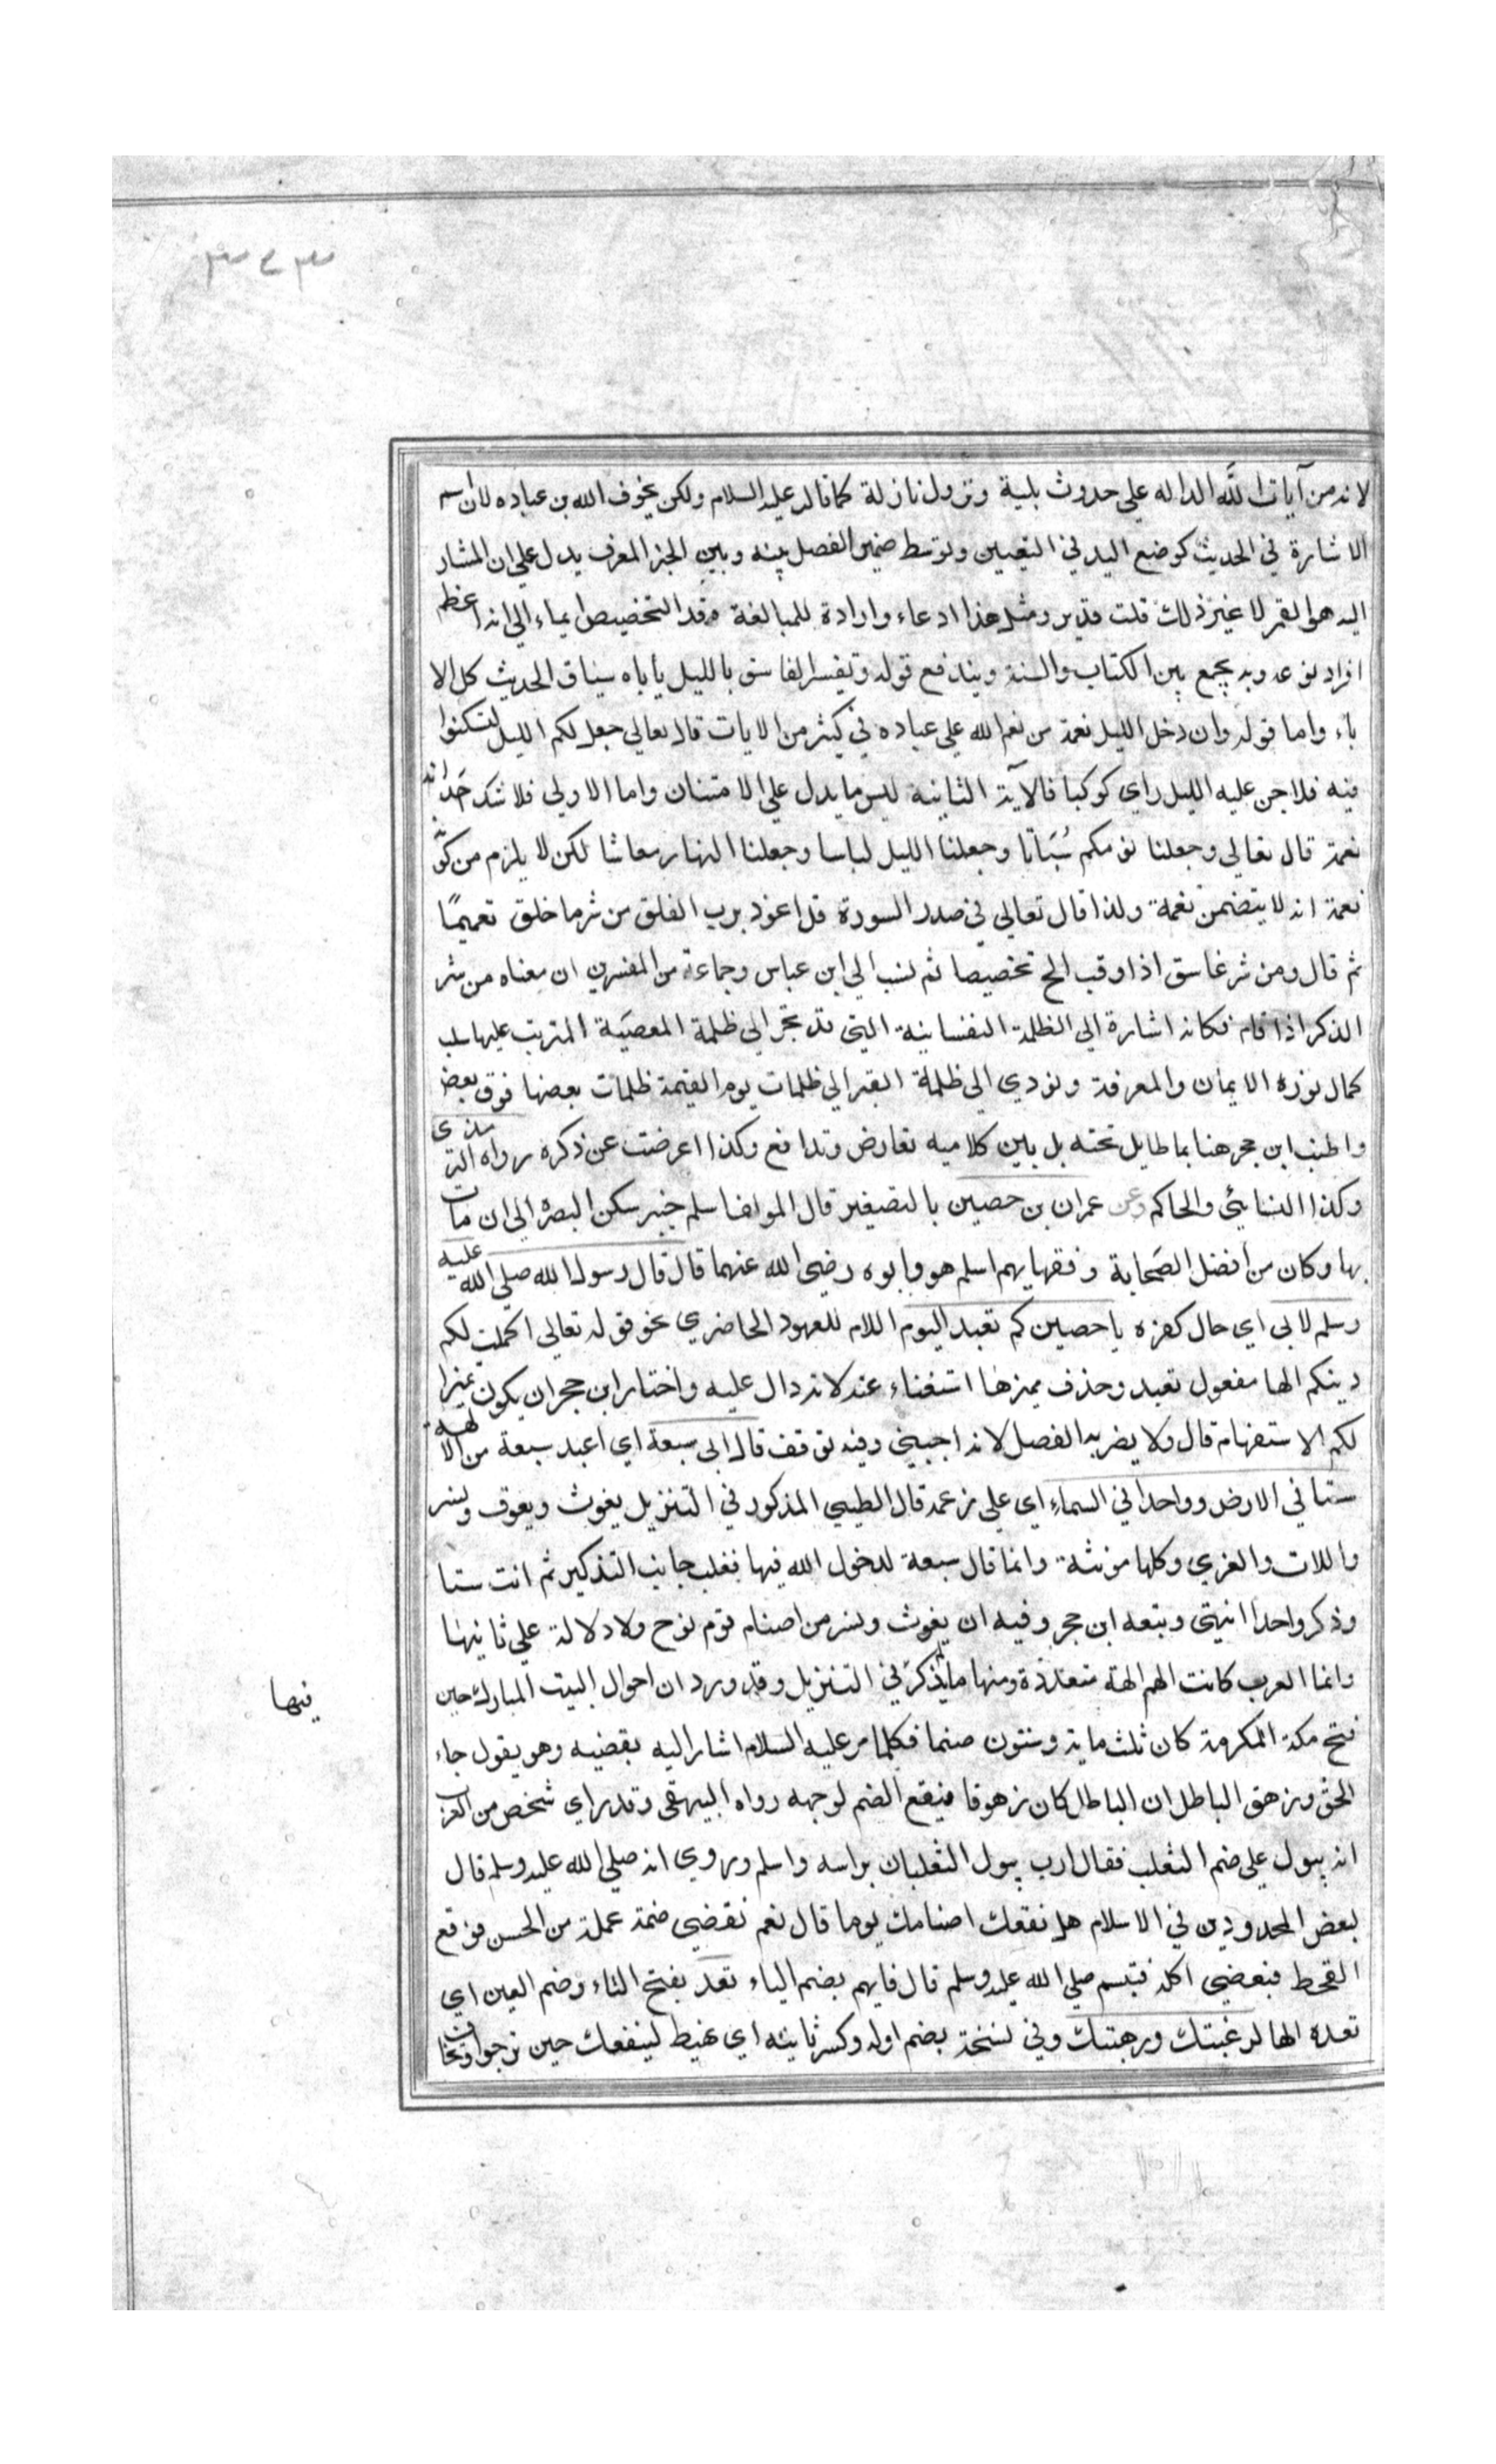 ٣٧٣
لانه من آيات الله الداله علي حدوث بلية ونزول نازلة كما قال عليه السلام ولكن يخوف الله بن عباده لان اسم
الاشارة في الحديث كوضع اليد في التعيين وتوسط ضمير الفصل بينه وبين الخبر المعرف يدل علي ان المشار
اليه هو القمر لا غير ذلك قلت قدير ومثل هذا ادعاء وارادة للمبالغة وقد التخصيص ايماء الي انه اعظم
افراد نوعه وبه يجمع بين الكتاب والسنة ويندفع قوله وتفسير الغاسق بالليل ياباه سياق الحديث كل الا
باء واما قوله وان دخل الليل نعمة من نعم الله علي عباده في كثير من الايات قال تعالي جعل لكم الليل لتسكنوا
فيه فلا جن عليه الليل راي كوكبا فالآية الثانية ليس ما يدل علي الامتنان واما الاولي فلا شك حد انه
نعمة قال تعالي وجعلنا نومكم سُبَاتا وجعلنا الليل لباسا وجعلنا النهار معاشا لكن لا يلزم من كونه
نعمة انه لا يتضمن نقمة ولذا قال تعالي في صدر السورة قل اعوذ برب الفلق من شر ما خلق تعميمًا
ثم قال ومن شر غاسق اذا وقب الخ تخصيصا ثم نسب الي ابن عباس وجماعة من المفسرين ان معناه من شر
الذكر اذا قام فكانه اشارة الي الظلمة النفسانية التي قد تجر الي ظلمة المعصية المترتب عليها سلب
كمال نوره الايمان والمعرفة وتودي الي ظلمة القبر الي ظلمات يوم القيمة ظلمات بعضها فوق بعض
واطنب ابن حجر هنا بما طايل تحته بل بين كلاميه تعارض وتدافع وكذا اعرضت عن ذكره رواه الترمذي
وكذا النسائي والحاكم وعن عمران بن حصين بالتصغير قال المولف اسلم خيبر سكن البصره الي ان مات
بها وكان من افضل الصحابة وفقهايهم اسلم هو وابوه رضي الله عنهما قال قال رسول الله صلي الله عليه
وسلم لابي اي حال كفره يا حصين كم تعبد اليوم اللام للعهود الحاضري نحو قوله تعالي اكملت لكم
دينكم الها مفعول تعبد وحذف مميزها استغناء عنه لانه دال عليه واختار ابن حجر ان يكون تميزا
لكم الاستفهام قال ولا يضر به الفصل لانه اجنبي وفيه توقف قال ابي سبعة اي اعبد سبعة من الالهة
ستا في الارض وواحدا في السماء اي علي زعمه قال الطيبي المذكور في التنزيل يغوث ويعوق ونسر
واللات والعزي وكلها مونثة وانما قال سبعة لدخول الله فيها فغلب جانب التذكير ثم انث ستا
وذكر واحدا انتهي وتبعه ابن حجر وفيه ان يغوث ونسر من اصنام قوم نوح ولا دلالة علي ثانيها
وانما العرب كانت الهم الهة متعددة ومنها ما يذكر في التنزيل وقد ورد ان احوال البيت المبارك حين
فتح مكة المكرمة كان ثلث ماية وستون صنما فكلما مر عليه السلام اشار اليه بقضيبه وهو يقول جاء
الحق وزهق الباطل ان الباطل كان زهوقا فيقع الضم لوجهه رواه البيهقي وقد راي شخص من العزب
انه يبول علي ضم الثعلب فقال ارب يبول الثعلبان براسه واسلم وروي انه صلي الله عليه وسلم قال
لبعض المحدودين في الاسلام هل نفعك اصنامك يوما قال نعم نقضي ضمة عملة من الحسن فوقع
القحط فنعضي اكله فتبسم صلي الله عليه وسلم قال فايهم بضم الياء تعدّ بفتح التاء وضم العين اي
تعده الها لرغبتك ورهبتك وفي نسخة بضم اوله وكسر ثانيه اي تهيط لينفعك حين ترجوا وتخاف
فيها